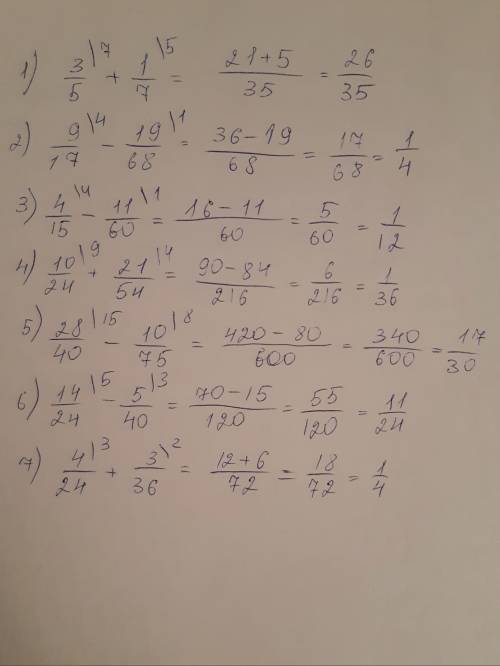 1) 3/5 \7 + 1/7 \5 = (21+5)/35 = 26/35
2) 9/17 \4 - 19/68 \1 = (36-19)/68 = 17/68 = 1/4
3) 4/15 \4 - 11/60 \1 = (16-11)/60 = 5/60 = 1/12
4) 10/24 \9 + 21/54 \4 = (90-84)/216 = 6/216 = 1/36
5) 28/40 \15 - 10/75 \8 = (420-80)/600 = 340/600 = 17/30
6) 14/24 \5 - 5/40 \3 = (70-15)/120 = 55/120 = 11/24
7) 4/24 \3 + 3/36 \2 = (12+6)/72 = 18/72 = 1/4